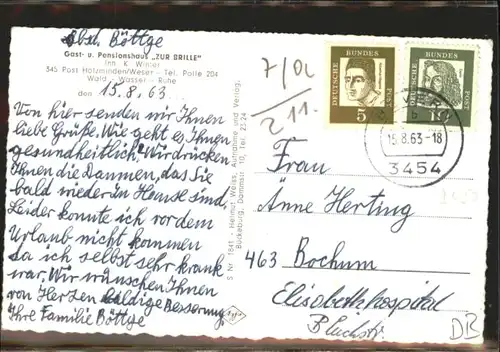 Abs. Böttge
Gast- u. Pensionshaus „ZUR GRILLE"
Inh. K. Winter
345 Post Holzminden/Weser - Tel. Polle 204
Wald - Wasser - Ruhe
den 15.8.63.
Von hier senden wir Ihnen
liebe Grüße. Wie geht es Ihnen
gesundheitlich? Wir drücken
Ihnen die Daumen, das Sie
bald wieder in Hause sind,
Leider konnte ich vor dem
Urlaub nicht kommen
da ich selbst sehr krank
war. Wir wünschen Ihnen
von Herzen baldige Besserung
Ihre Familie Böttge
S Nr. 1841 - Helmut Weiss, Aufnahme und Verlag,
Bückeburg, Dammstr. 10, Tel. 25 24
DEUTSCHE BUNDES POST
5
DEUTSCHE BUNDES POST
10
15.8.63-18
3454
Frau
Änne Herting
463 Bochum
Elisabethhospital
Bleichstr.
DB